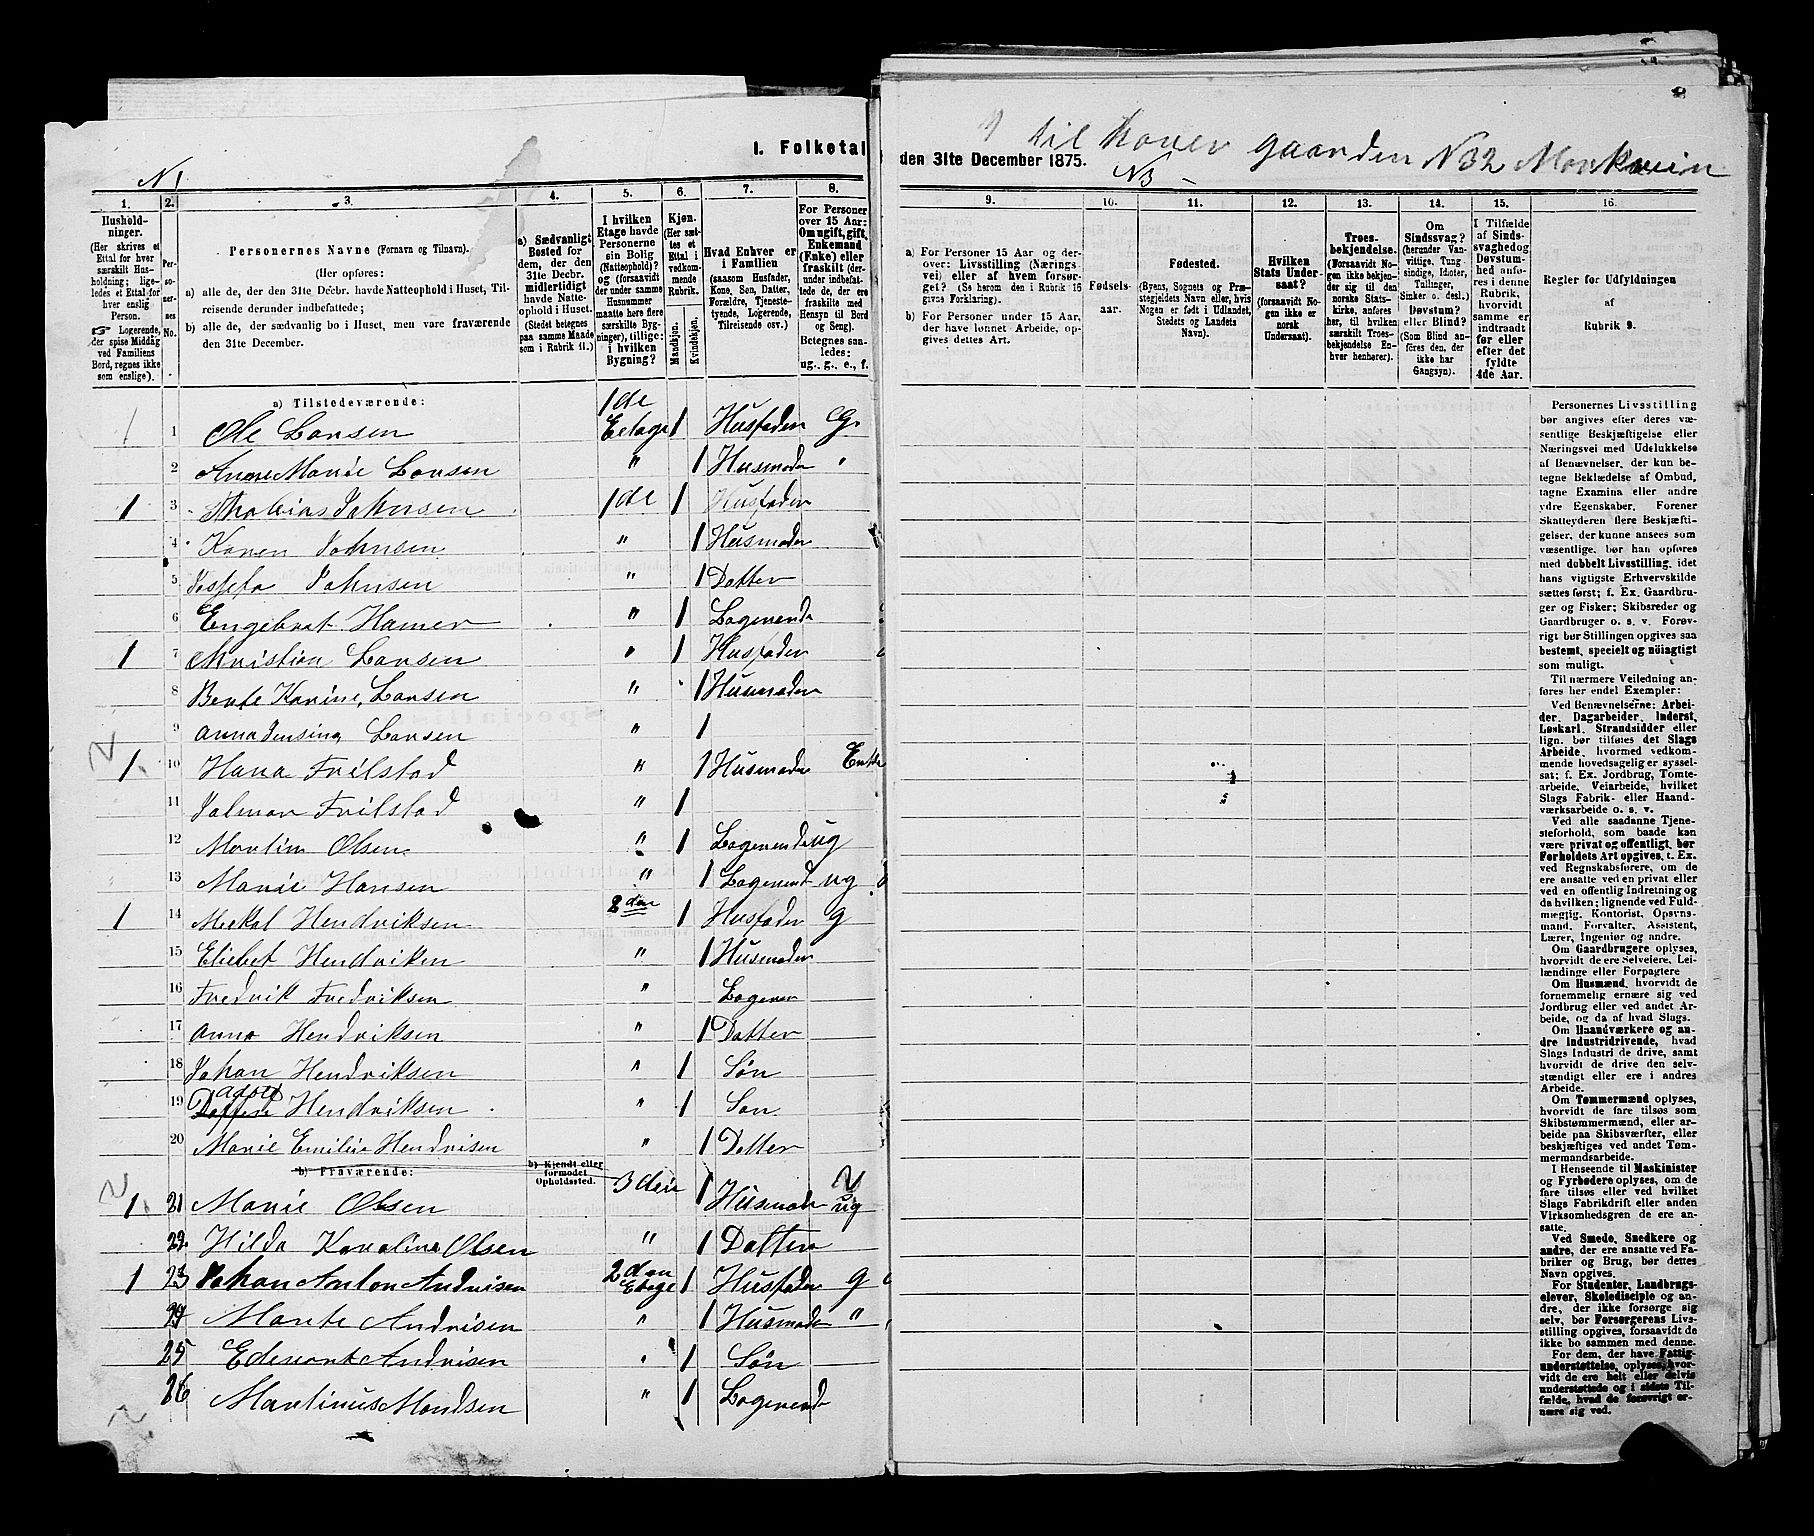 I. Folketal
N 1.
1.
2.
3.
4.
5.
6.
7.
8.
Husholdninger.
(Her skrives et Ettal for hver særskilt Husholdning; ligeledes et Ettal for hver enslig Person.
Logerende, der spise Middag ved Familiens Bord, regnes ikke som enslige).
Personernes No.
Personernes Navne (Fornavn og Tilnavn).
(Her opføres:
a) alle de, der den 31te Decbr. havde Natteophold i Huset, Tilreisende derunder indbefattede;
b) alle de, der sædvanlig bo i Huset, men vare fraværende den 31te December.
a) Sædvanligt Bosted for dem, der den 31te Decbr. midlertidigt havde Natteophold i Huset.
(Stedet betegnes paa samme Maade som i Rubrik 11.)
I hvilken Etage havde Personerne sin Bolig (Natteophold)?
(forsaavidt der under samme Husnummer maatte høre flere særskilte Bygninger), tillige: i hvilken Bygning?
Kjøn.
(Her sættes et Ettal i vedkommende Rubrik.
Mandkjøn.
Kvindekjøn.
Hvad Enhver er i Familien
(saasom Husfader, Kone, Søn, Datter, Forældre, Tjenestetyende, Logerende, Tilreisende osv.)
For Personer over 15 Aar: Om ugift, gift, Enkemand (Enke) eller fraskilt (derunder indbefattede de, der ere fraskilte med Hensyn til Bord og Seng).
Betegnes saaledes: ug., g., e., f.
a) Tilstedeværende:
1 1 Ole Larsen 1de Etage 1 Husfader G.
2 Anne Marie Larsen " 1 Husmoder "
1 3 Thobias Johnsen 1de 1 Husfader
4 Karen Johnsen " 1 Husmoder
5 Johnsen " 1 Datter
6 Engebret Hamer " 1 Logerende
1 7 Christian Larsen " 1 Husfader
8 Bente Karine Larsen " 1 Husmoder
9 Anna Jensine Larsen " 1
1. 10 Hana Frilstad " 1 Husmoder Enke
11 Jalmar Frilstad " 1
12 Martin Olsen " 1 Logerende ug
13 Marie Hansen " 1 Logerend ug
1 14 Mekal Hendriksen 2den 1 Husfader g
15 Eliebet Hendriken " 1 Husmoder
16 Fredrik Fredriksen " Logeren
17 Anna Hendriksen " 1 Datter
18 Johan Hendriksen " 1 Søn
Adolf
19 Hendriksen " 1 Søn
20 Marie Emilie Hendrisen " 1 Datter
b) Fraværende:
b) Kjendt eller formodet Opholdssted.
1. 21 Marie Olsen 3die 1 Husmoder ug
22. Hilda Karoline Olsen " 1 Datter
1 23 Johan Anton Andrisen 2den Etage 1 Husfader g
24 Marte Andrisen " 1 Husmoder "
25 Edevart Andrisen " 1 Søn
26 Martinus Mondsen " 1 Logerend
1 til hover gaarden N 32 Markvein
den 31te December 1875.
N3 -
9.
10.
11.
12.
13.
14.
15.
16.
a) For Personer 15 Aar og derover: Livsstilling (Næringsvei) eller af hvem forsørget? (Se herom den i Rubrik 16 givne Forklaring).
b) For Personer under 15 Aar, der have lønnet Arbeide, opgives dettes Art.
Fødselsaar.
Fødested.
(Byens, Sognets og Præstegjeldets Navn eller, hvis Nogen er født i Udlandet, Stedets og Landets Navn).
Hvilken Stats Undersaat?
(forsaavidt Nogen ikke er norsk Undersaat).
Troesbekjendelse.
(Forsaavidt Nogen ikke bekjender sig til den norske Statskirke, anføres her, til hvilken særskilt Troesbekjendelse Enhver henhører).
Om Sindssvag? (herunder Vanvittige, Tungsindige, Idioter, Tullinger, Sinker o. desl.) Døvstum? eller Blind?
(Som Blind anføres den, der ikke har Gangsyn).
I Tilfælde af Sindssvaghed og Døvstumhed anføres i denne Rubrik, hvorvidt samme er indtraadt før eller efter det fyldte 4de Aar.
Regler for Udfyldningen
af
Rubrik 9.
Personernes Livsstilling
bør angives efter deres væ-
sentlige Beskjæftigelse eller
Næringsvei med Udelukkelse
af Benævnelser, der kun be-
tegne Beklædelse af Ombud,
tagne Examina eller andre
ydre Egenskaber. Forener
Skatteyderen flere Beskjæfti-
gelser, der kunne ansees som
væsentlige, bør han opføres
med dobbelt Livsstilling, idet
hans vigtigste Erhvervskilde
sættes først; f. Ex. Gaardbru-
ger og Fisker; Skibsreder og
Gaardbruger o. s. v. Forøv-
rigt bør Stillingen opgives saa
bestemt, specielt og nøiagtigt
som muligt.
Til nærmere Veiledning an-
føres her endel Exempler:
Ved Benævnelserne: Arbei-
der, Dagarbeider, Inderst,
Løskarl, Strandsidder eller
lign. bør tilføies det Slags
Arbeide, hvormed vedkom-
mende hovedsagelig er syssel-
sat; f. Ex. Jordbrug, Tomte-
arbeide, Veiarbeide, hvilket
Slags Fabrik- eller Haand-
værksarbeide o. s. v.
Ved alle saadanne Tjene-
steforhold, som baade kan
være privat og offentligt, bør
Forholdets Art opgives, t. Ex.
ved Regnskabsførere, om de
ere ansatte ved en privat eller
ved en offentlig Indretning og
da hvilken; lignende ved Fuld-
mægtig, Kontorist, Opsyns-
mand, Forvalter, Assistent,
Lærer, Ingeniør og andre.
Om Gaardbrugere oplyses,
hvorvidt de ere Selveiere, Lei-
lændinge eller Forpagtere
Om Husmænd, hvorvidt de
fornemmelig ernære sig ved
Jordbrug eller ved andet Ar-
beide, og da af hvad Slags.
Om Haandværkere og an-
dre Industridrivende, hvad
Slags Industri de drive, samt
hvorvidt de drive den selv-
stændigt eller ere i andres
Arbeide.
Om Tømmermænd oplyses,
hvorvidt de fare tilsøs som
Skibstømmermænd, eller ar-
beide paa Skibsværfter, eller
beskjæftiges ved andet Tøm-
mermandsarbeide.
I Henseende til Maskinister
og Fyrbødere oplyses, om de
fare tilsøs eller ved hvilket
Slags Fabrikdrift eller anden
Virksomhedsgren de ere an-
satte.
Ved Smede, Snedkere og
andre, der ere ansatte ved Fa-
briker og Brug, bør dettes
Navn opgives.
For Studenter, Landbrugs-
elever, Skoledisciple og an-
dre, der ikke forsørge sig
selv, bør Forsørgerens Livs-
stilling opgives, forsaavidt de
ikke bo sammen med denne.
For dem, der have Fattig-
understøttelse, oplyses, hvor-
vidt de ere helt eller delvis
understøttede og i sidste Til-
fælde, hvad de forøvrigt er-
nære sig ved.